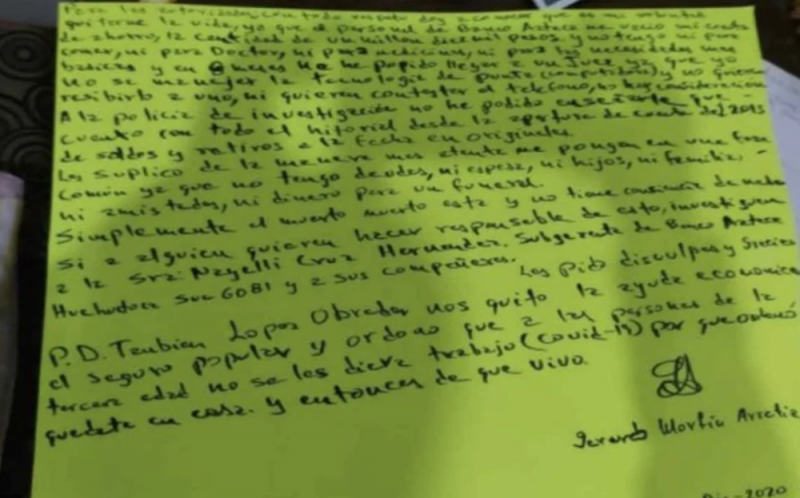 Para las autoridades, con todo respeto doy a conocer que es mi voluntad
quitarme la vida, ya que el personal de Banco Azteca me vacio mi cuenta
de ahorro, la cantidad de un millon pesos y no tengo ni para
comer, ni para Doctor, ni para medicina, ni para las necesidades mas
basicas y en 8 meses no he podido llegar a un Juez ya que yo
no se manejar la tecnologia de punta (computadora) y no quieren
resibirlo a uno, ni quieren contestar el telefono, no hay consideracion
A la policia de investigación no he podido enseñarle que
cuento con todo el historial desde la apertura de cuenta del 2015
de saldos y retiros a la fecha en originales.
Les suplico de la manera mas atenta me pongan en una fosa
común ya que no tengo deudos, ni esposa, ni hijos, ni familia
ni amistades, ni dinero para un funeral.
Simplemente el muerto muerto esta y no tiene conciencia de nada
Si a alguien quieren hacer responsable de esto, investiguen
a la Sra: Nayelli Cruz Hernandez. Subgerente de Banco Azteca
Huehuetoca Suc 6081 y a sus compañeros.
Les Pido disculpas y Gracias
P.D. Tambien Lopez Obrador nos quito la ayuda economica
el Seguro popular y ordono que a las personas de la
tercera edad no se les diera trabajo (Covid-19) por que ordenó
quedate en casa. y entonces de que vivo.
Gerardo
2020